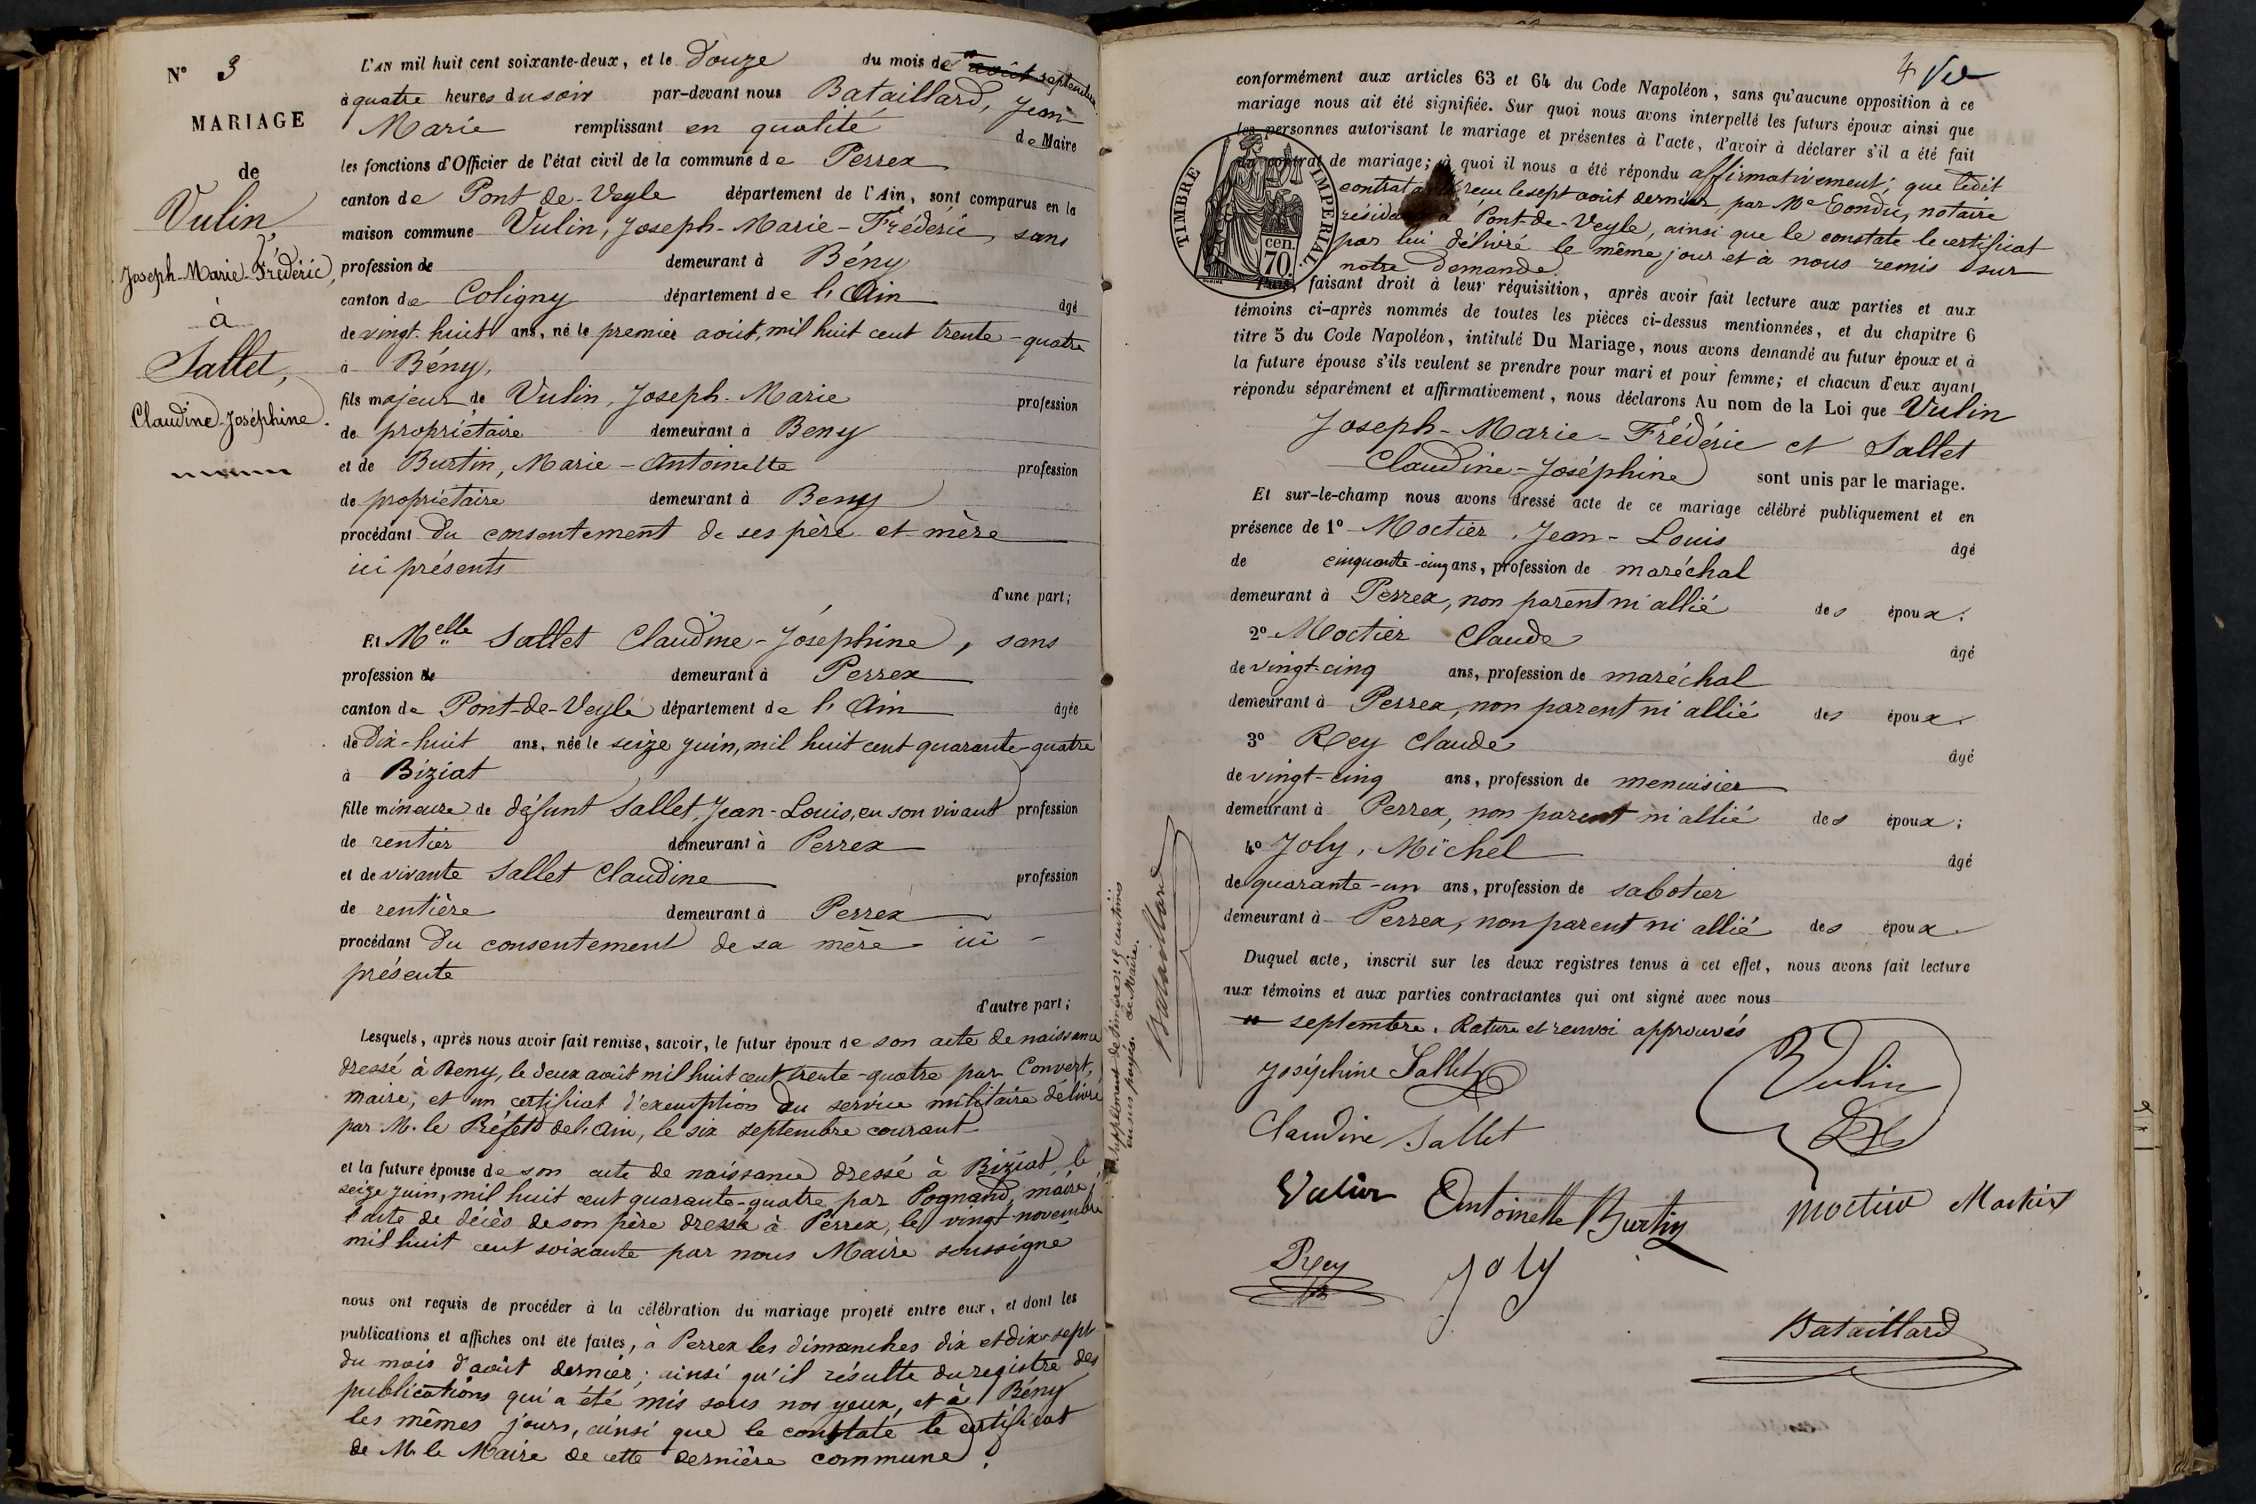 N° 3
MARIAGE
de
Vulin,
Joseph-Marie-Frédéric,
à
Sallet,
Claudine-Joséphine.
L'AN mil huit cent soixante-deux, et le Douze du mois de août septembre
à quatre heures du soir par-devant nous Bataillard, Jean
Marie remplissant en qualité de Maire
les fonctions d'Officier de l'état civil de la commune de Perrex
canton de Pont-de-Veyle département de l'Ain, sont comparus en la
maison commune Vulin, Joseph-Marie-Frédéric, sans
profession de demeurant à Bény
canton de Coligny département de l'Ain âgé
de vingt-huit ans, né le premier août, mil huit cent trente-quatre
à Bény,
fils majeur de Vulin, Joseph-Marie profession
de propriétaire demeurant à Beny
et de Burtin, Marie-Antoinette profession
de propriétaire demeurant à Beny
procédant Du consentement de ses père et mère
ici présents
d'une part;
Et Melle Sallet Claudine-Joséphine, sans
profession de demeurant à Perrex
canton de Pont-de-Veyle département de l'Ain âgée
de Dix-huit ans, née le seize juin, mil huit cent quarante-quatre
à Biziat
fille mineure de défunt Sallet, Jean-Louis, en son vivant profession
de rentier demeurant à Perrex
et de vivante Sallet Claudine profession
de rentière demeurant à Perrex
procédant Du consentement de sa mère ici
présente
d'autre part;
Lesquels, après nous avoir fait remise, savoir, le futur époux de son acte de naissance
dressé à Beny, le deux août mil huit cent trente-quatre par Convert,
maire, et un certificat d'exemption du service militaire délivré
par M. le Préfet de l'Ain, le six septembre courant
et la future épouse de son acte de naissance dressé à Biziat, le
seize juin, mil huit cent quarante-quatre par Pognand, maire,
l'acte de décès de son père dressé à Perrex, le vingt novembre
mil huit cent soixante par nous Maire soussigné
nous ont requis de procéder à la célébration du mariage projeté entre eux, et dont les
publications et affiches ont été faites, à Perrex les dimanches dix et dix-sept
du mois d'août dernier; ainsi qu'il résulte du registre des
publications qui a été mis sous nos yeux, et à Bény
les mêmes jours, ainsi que le constate le certificat
de M. le Maire de cette dernière commune.
4
conformément aux articles 63 et 64 du Code Napoléon, sans qu'aucune opposition à ce
mariage nous ait été signifiée. Sur quoi nous avons interpellé les futurs époux ainsi que
les personnes autorisant le mariage et présentes à l'acte, d'avoir à déclarer s'il a été fait
un contrat de mariage; à quoi il nous a été répondu affirmativement; que ledit
contrat a été reçu le sept août dernier, par Me Condu, notaire
résidant à Pont-de-Veyle, ainsi que le constate le certificat
par lui délivré le même jour et à nous remis sur
notre demande.
TIMBRE IMPERIAL
70 cen.
Puis, faisant droit à leur réquisition, après avoir fait lecture aux parties et aux
témoins ci-après nommés de toutes les pièces ci-dessus mentionnées, et du chapitre 6
titre 5 du Code Napoléon, intitulé Du Mariage, nous avons demandé au futur époux et à
la future épouse s'ils veulent se prendre pour mari et pour femme; et chacun d'eux ayant
répondu séparément et affirmativement, nous déclarons Au nom de la Loi que Vulin
Joseph-Marie-Frédéric et Sallet
Claudine-Joséphine sont unis par le mariage.
Et sur-le-champ nous avons dressé acte de ce mariage célébré publiquement et en
présence de 1° Moctier, Jean-Louis âgé
de cinquante-cinq ans, profession de maréchal
demeurant à Perrex, non parent ni allié des époux.
2° Moctier Claude âgé
de vingt-cinq ans, profession de maréchal
demeurant à Perrex, non parent ni allié des époux.
3° Rey Claude âgé
de vingt-cinq ans, profession de menuisier
demeurant à Perrex, non parent ni allié des époux;
4° Joly, Michel âgé
de quarante-un ans, profession de sabotier
demeurant à Perrex, non parent ni allié des époux.
Duquel acte, inscrit sur les deux registres tenus à cet effet, nous avons fait lecture
aux témoins et aux parties contractantes qui ont signé avec nous
septembre. Rature et renvoi approuvés
Joséphine Sallet
Vulin
Claudine Sallet
Vulin
Antoinette Burtin
moctier
Moctier
Rey
Joly
Bataillard
Bataillard